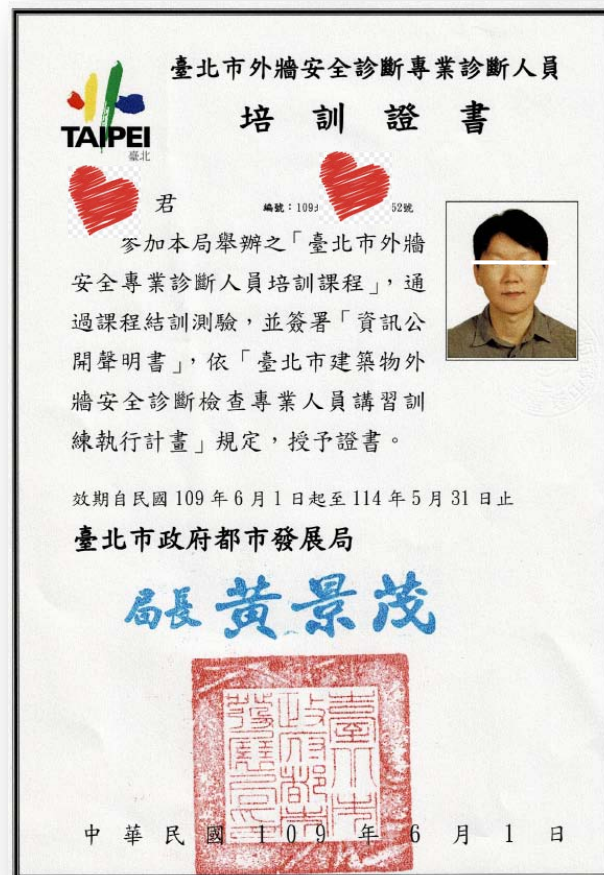 臺北市外牆安全診斷專業診斷人員
培訓證書
TAIPEI
臺北
君
編號：109 52號
參加本局舉辦之「臺北市外牆
安全專業診斷人員培訓課程」，通
過課程結訓測驗，並簽署「資訊公
開聲明書」，依「臺北市建築物外
牆安全診斷檢查專業人員講習訓
練執行計畫」規定，授予證書。
效期自民國109年6月1日起至114年5月31日止
臺北市政府都市發展局
局長 黃景茂
臺北市
政府都市
發展局印
中華民國109年6月1日